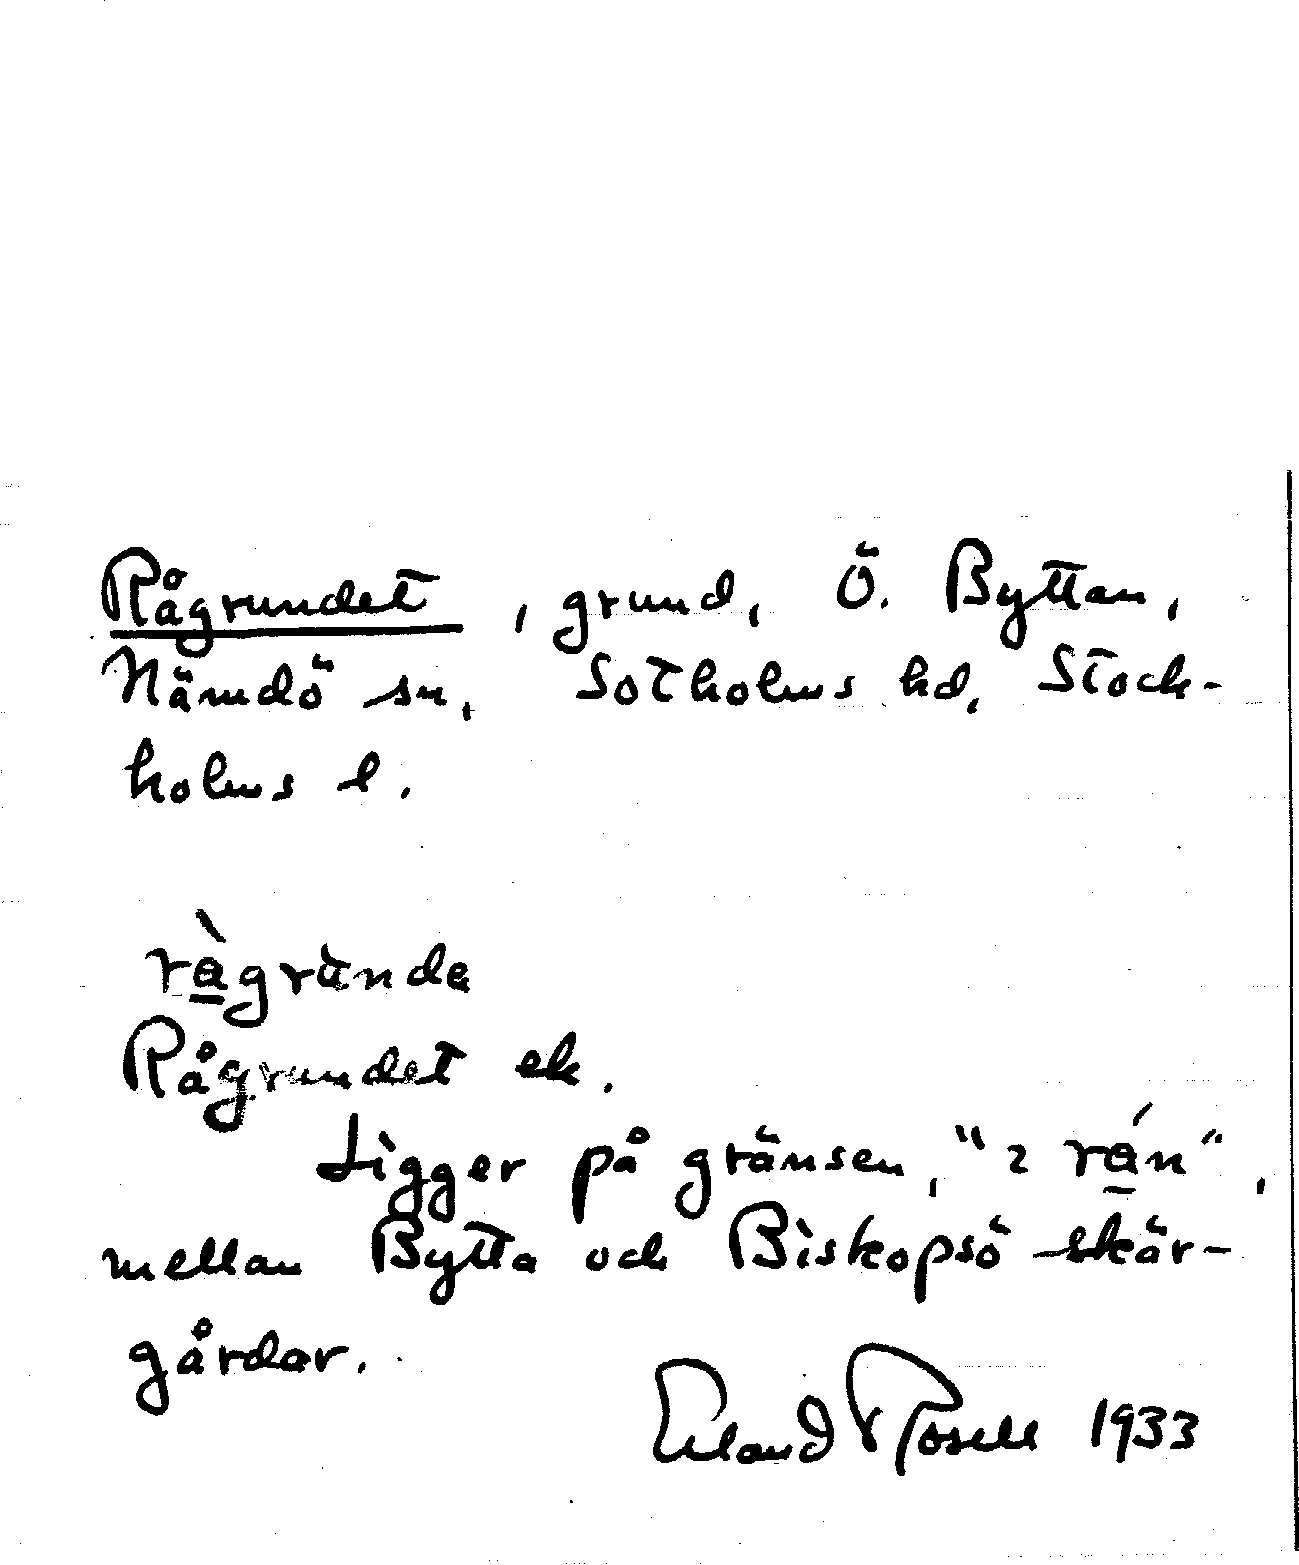 Rågrundet, grund, Ö. Byttan,
Nämdö sn, Sotholms hd, Stock-
holms l.
rа̱̀grùnde
Rågrundet ek.
Ligger på gränsen, "2 rá̱n",
mellan Bytta och Biskopsö skär-
gårdar.
Erland Rosell 1933